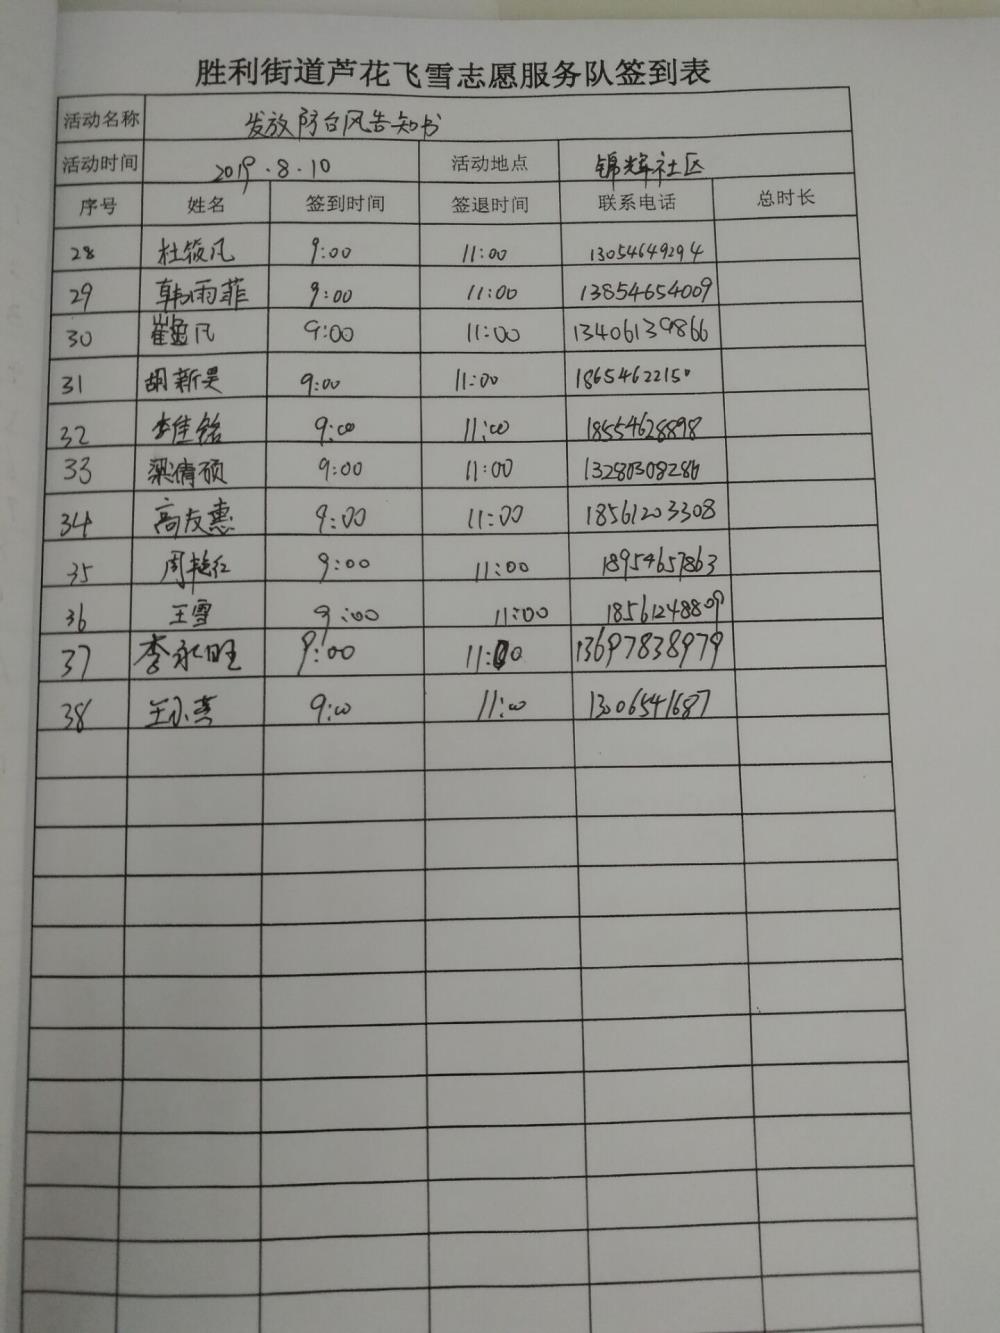 胜利街道芦花飞雪志愿服务队签到表
活动名称 发放防台风告知书
活动时间 2019.8.10 活动地点 锦辉社区
序号 姓名 签到时间 签退时间 联系电话 总时长
28 杜筱凡 9:00 11:00 13054649294
29 韩雨菲 9:00 11:00 13854654009
30 崔盈凡 9:00 11:00 13406139866
31 胡新昊 9:00 11:00 18654622150
32 李佳铭 9:00 11:00 18554628898
33 梁倩硕 9:00 11:00 13280308286
34 高友惠 9:00 11:00 18561203308
35 周艳红 9:00 11:00 18954657863
36 王雪 9:00 11:00 18561248809
37 李永旺 9:00 11:00 13697838979
38 王小燕 9:00 11:00 1306541687